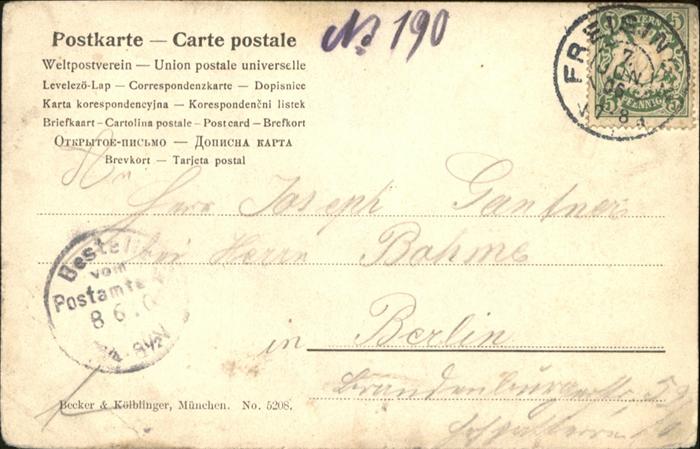 Postkarte — Carte postale
Weltpostverein — Union postale universelle
Levelező-Lap — Correspondenzkarte — Dopisnice
Karta korespondencyjna — Korespondenční listek
Briefkaart — Cartolina postale — Post card — Brefkort
Открытое-письмо — Дописна карта
Brevkort — Tarjeta postal
No 190
BAYERN
5 5
PFENNIG
FREISING
7 JUN
06
8
Herrn Joseph Gantner
bei Herrn Bohme
in Berlin
Brandenburgerstr. 5
Bestellt
vom
Postamte
8 6. 0
8½ V
Becker & Kölblinger, München. No. 5208.